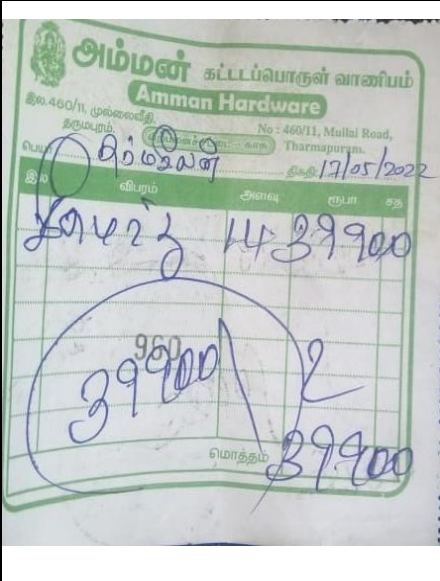 அம்மன் கட்டடப்பொருள் வாணிபம்
Amman Hardware
இல.460/11, முல்லைவீதி, தருமபுரம்.
No : 460/11, Mullai Road, Tharmapuram.
பெயர் திகதி 17/05/2022
இல விபரம் அளவு ரூபா சத
14 39900
960
39900
மொத்தம் 39900